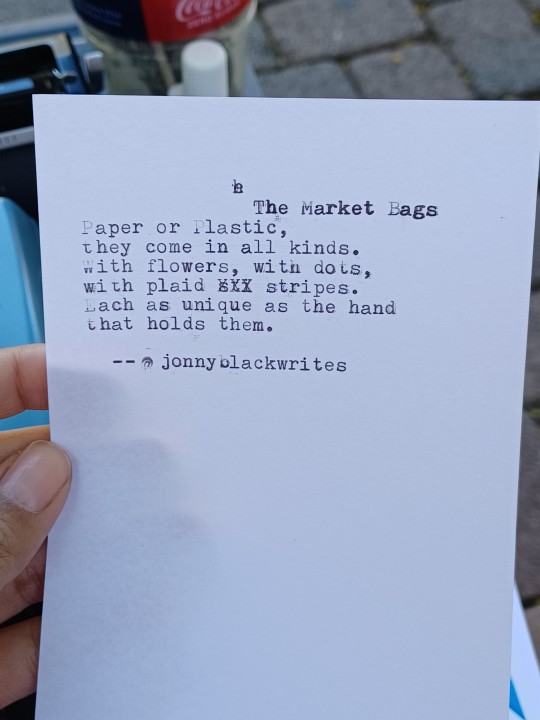 Coca-Cola
The Market Bags
Paper or Plastic,
they come in all kinds.
With flowers, with dots,
with plaid XXX stripes.
Each as unique as the hand
that holds them.
--@jonnyblackwrites